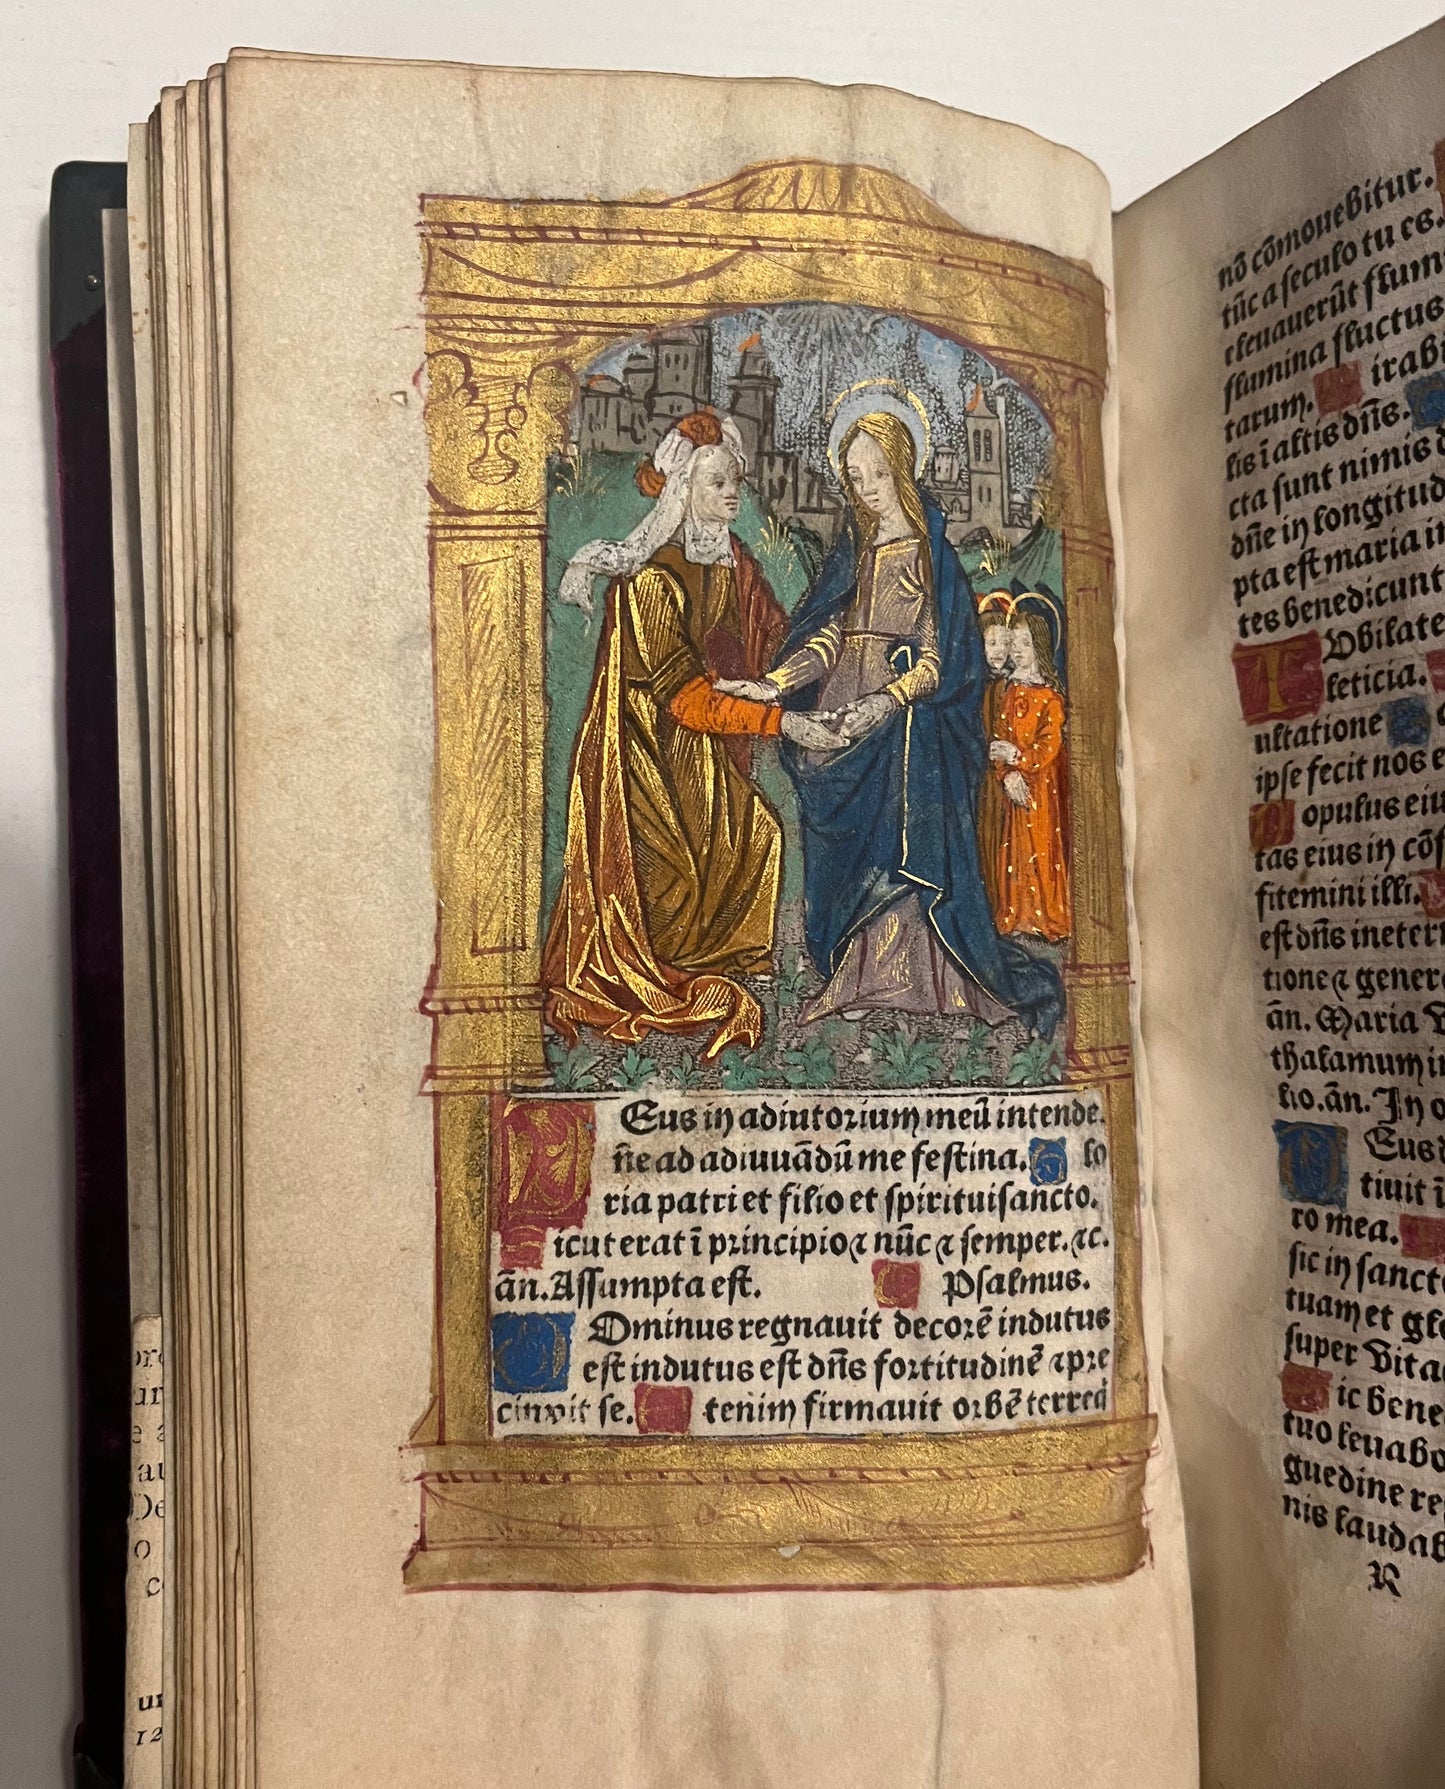 Eus in adiutorium meū intende.
ñe ad adiuuādū me festina. G lo
ria patri et filio et spirituisancto.
S icut erat ī principio ⁊ nūc ⁊ semper. ⁊c.
ān. Assumpta est. Psalmus.
D Ominus regnauit decorē indutus
est indutus est dn̄s fortitudinē ⁊ pre
cinxit se. tenim firmauit orbē terre
nō cōmouebitur.
tūc a seculo tu es.
eleuauerūt flum
flumina fluctus
tarum. irabi
lis ī altis dn̄s.
cta sunt nimis
dn̄e in longitud
pta est maria in
tes benedicunt
I Vbilate
leticia.
ultatione
ipse fecit nos
opulus eiu
tas eius in cōf
fitemini illi.
est dn̄s in eter
tione ⁊ gener
ān. Maria V
thalamum in
lio. ān. In o
D Eus
tiuit ī
ro mea.
sic in sanct
tuam et gl
super vita
ic bene
tuo leuabo
guedine re
nis laudab
R
12